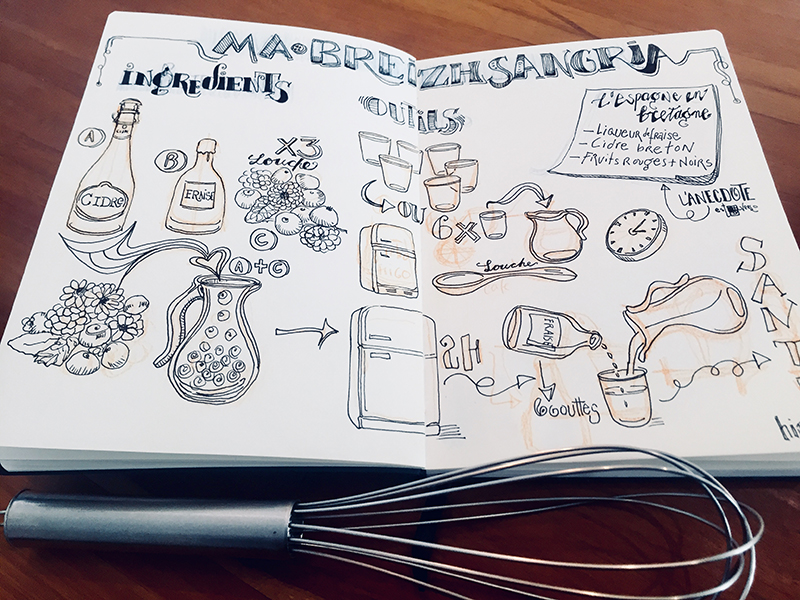 MA BREIZH SANGRIA
INGREDIENTS
A
CIDRE
B
FRAISE
X3
Louche
C
A+C
OUTILS
OU
6X
Louche
L'Espagne en
bretagne
- Liqueur de fraise
- Cidre breton
- Fruits Rouges + Noirs
L'ANECDOTE
2H
FRAISE
6 Gouttes
SANT